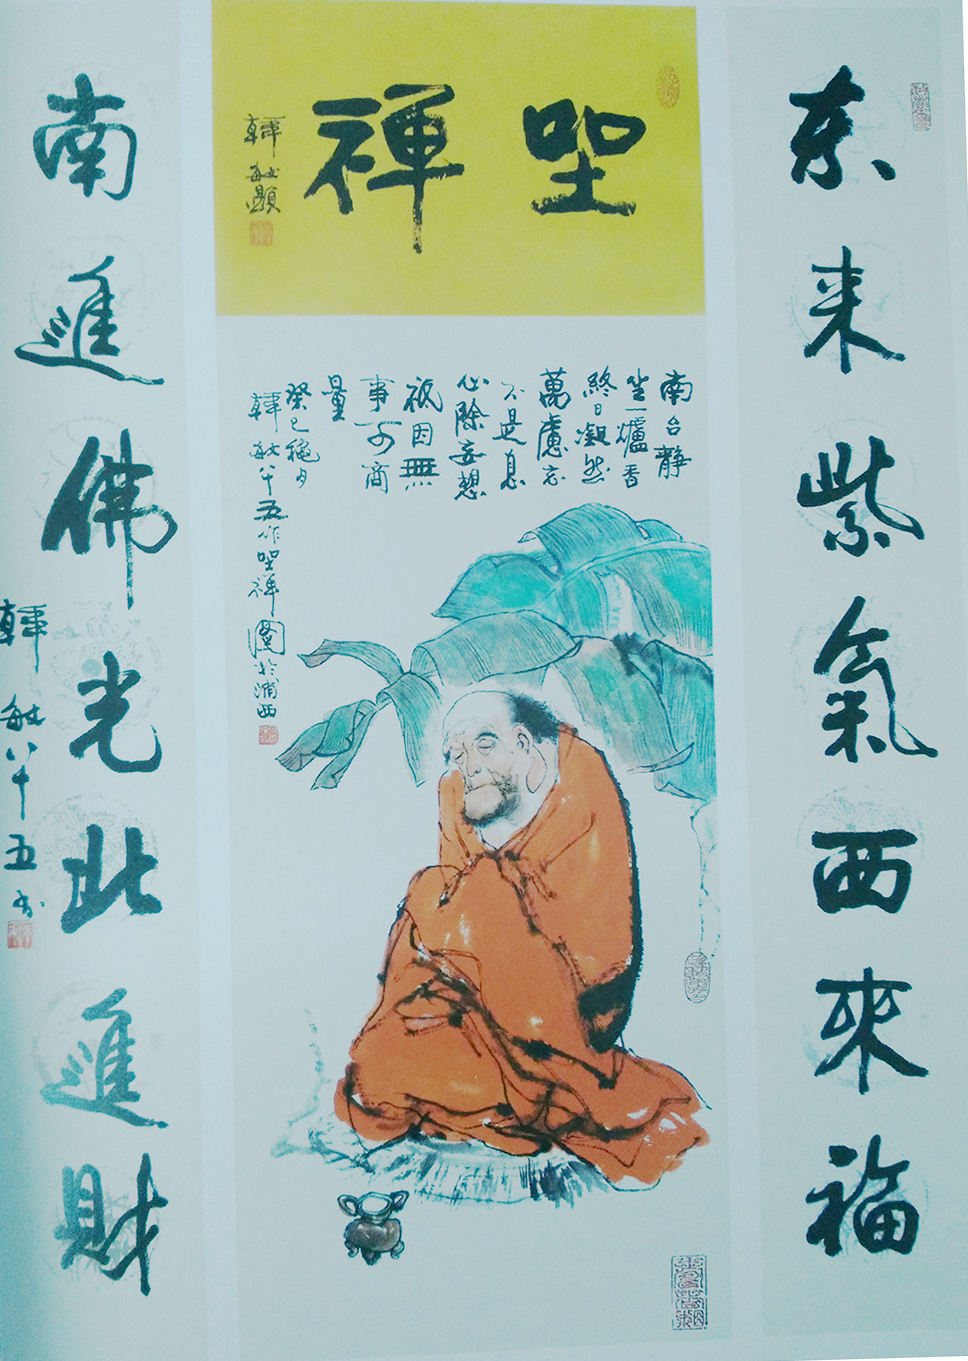 东来紫氣西來福
坐禪
韓敏題
南台静
坐一爐香
終日凝然
萬慮忘
不是息
心除妄想
祇因無
事可商
量
癸巳穐月
韓敏八十五作坐禅圖於浦西
南進佛光北進財
韓敏八十五书